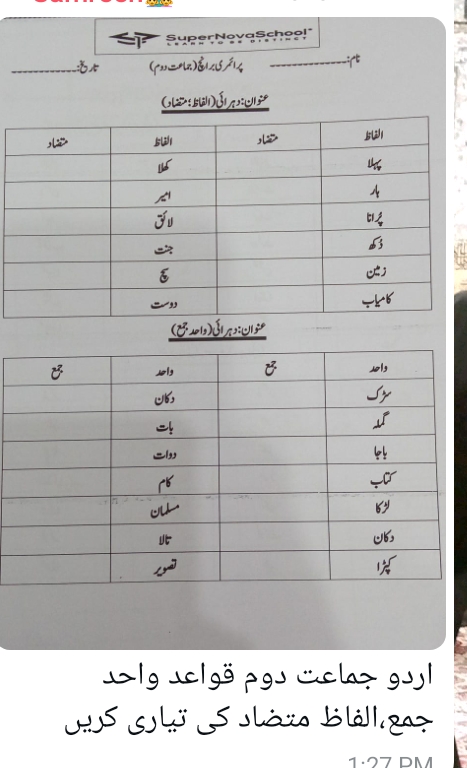 SuperNovaSchool
LEARN TO BE DISTINCT
نام:---------------- پرائمری برانچ (جماعت دوم) تاریخ:----------------
عنوان: دہرائی (الفاظ؛ متضاد)
الفاظ متضاد الفاظ متضاد
پہلا کھلا
ہار امیر
پُرانا لائق
دُکھ جنت
زمین سچ
کامیاب دوست
عنوان: دہرائی (واحد جمع)
واحد جمع واحد جمع
سڑک دکان
گملہ بات
باجا دوات
کتاب کام
لڑکا مسلمان
دکان تالا
کپڑا تصویر
اردو جماعت دوم قواعد واحد
جمع،الفاظ متضاد کی تیاری کریں
1:27 PM